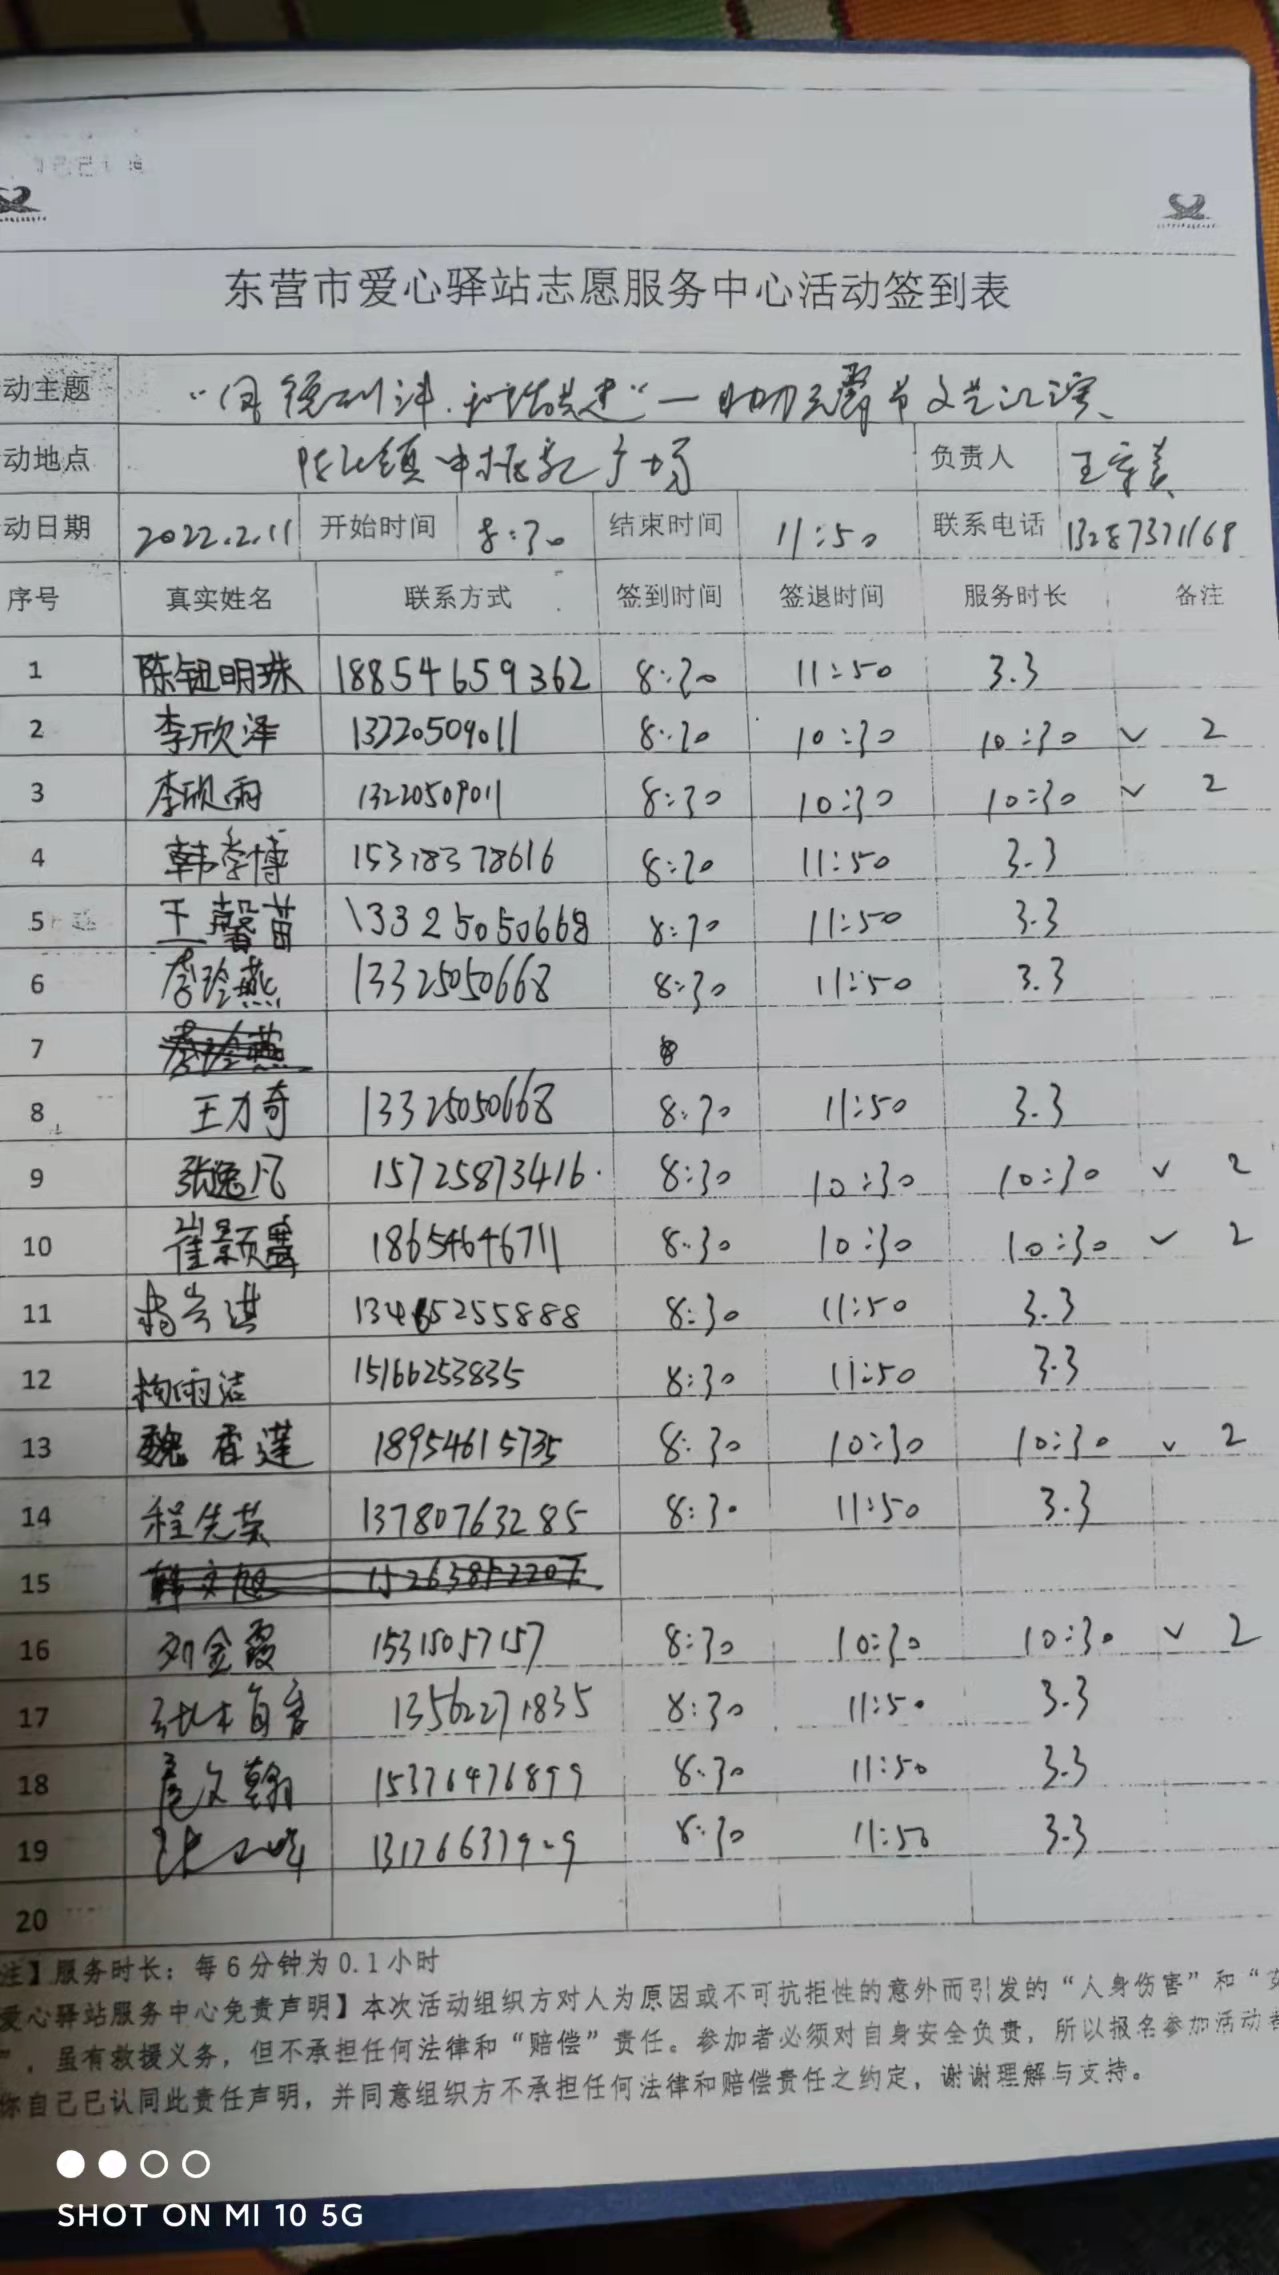 东营市爱心驿站志愿服务中心活动签到表
动主题 助力元宵节文艺汇演
动地点 广场 负责人 王
动日期 2022.2.11 开始时间 8:30 结束时间 11:50 联系电话 13287371168
序号 真实姓名 联系方式 签到时间 签退时间 服务时长 备注
1 陈钮明珠 18854659362 8:30 11:50 3.3
2 李欣泽 13220509011 8:30 10:30 10:30 ✓ 2
3 李欣雨 13220509011 8:30 10:30 10:30 ✓ 2
4 韩学博 15318378616 8:30 11:50 3.3
5 王馨苗 13325050668 8:30 11:50 3.3
6 李玲燕 13325050668 8:30 11:50 3.3
7 李玲燕 8
8 王力奇 13325050668 8:30 11:50 3.3
9 张逸凡 15725873416 8:30 10:30 10:30 ✓ 2
10 崔景颐 18654646711 8:30 10:30 10:30 ✓ 2
11 13465255888 8:30 11:50 3.3
12 雨洁 15166253835 8:30 11:50 3.3
13 魏香莲 18954615735 8:30 10:30 10:30 ✓ 2
14 程先英 13780763285 8:30 11:50 3.3
15 韩文旭 15263852207
16 刘金霞 15315057157 8:30 10:30 10:30 ✓ 2
17 13562271835 8:30 11:50 3.3
18 文翰 15376476899 8:30 11:50 3.3
19 8:30 11:50 3.3
20
注】服务时长：每6分钟为0.1小时
爱心驿站服务中心免责声明】本次活动组织方对人为原因或不可抗拒性的意外而引发的“人身伤害”和“
”，虽有救援义务，但不承担任何法律和“赔偿”责任。参加者必须对自身安全负责，所以报名参加活动者
你自己已认同此责任声明，并同意组织方不承担任何法律和赔偿责任之约定，谢谢理解与支持。
SHOT ON MI 10 5G